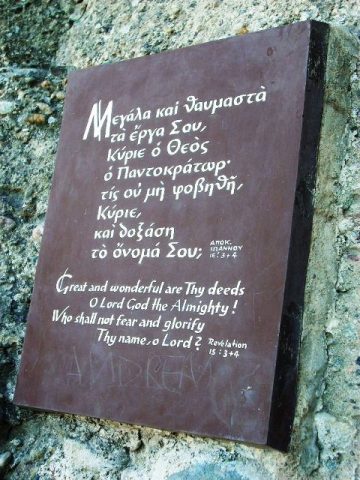 Μεγάλα καὶ θαυμαστὰ
τὰ ἔργα Σου,
Κύριε ὁ Θεὸς
ὁ Παντοκράτωρ·
τίς οὐ μὴ φοβηθῇ,
Κύριε,
καὶ δοξάσῃ
τὸ ὄνομά Σου;
ΑΠΟΚ.
ΙΩΑΝΝΟΥ
ΙΕ΄: 3+4
Great and wonderful are Thy deeds
O Lord God the Almighty!
Who shall not fear and glorify
Thy name, O Lord?
Revelation
15:3+4